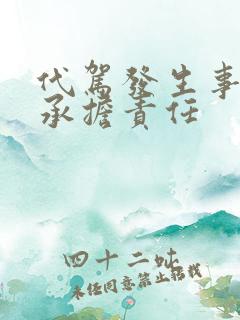 代駕發生事
承擔責任
四十二吹
未经同意禁止转载